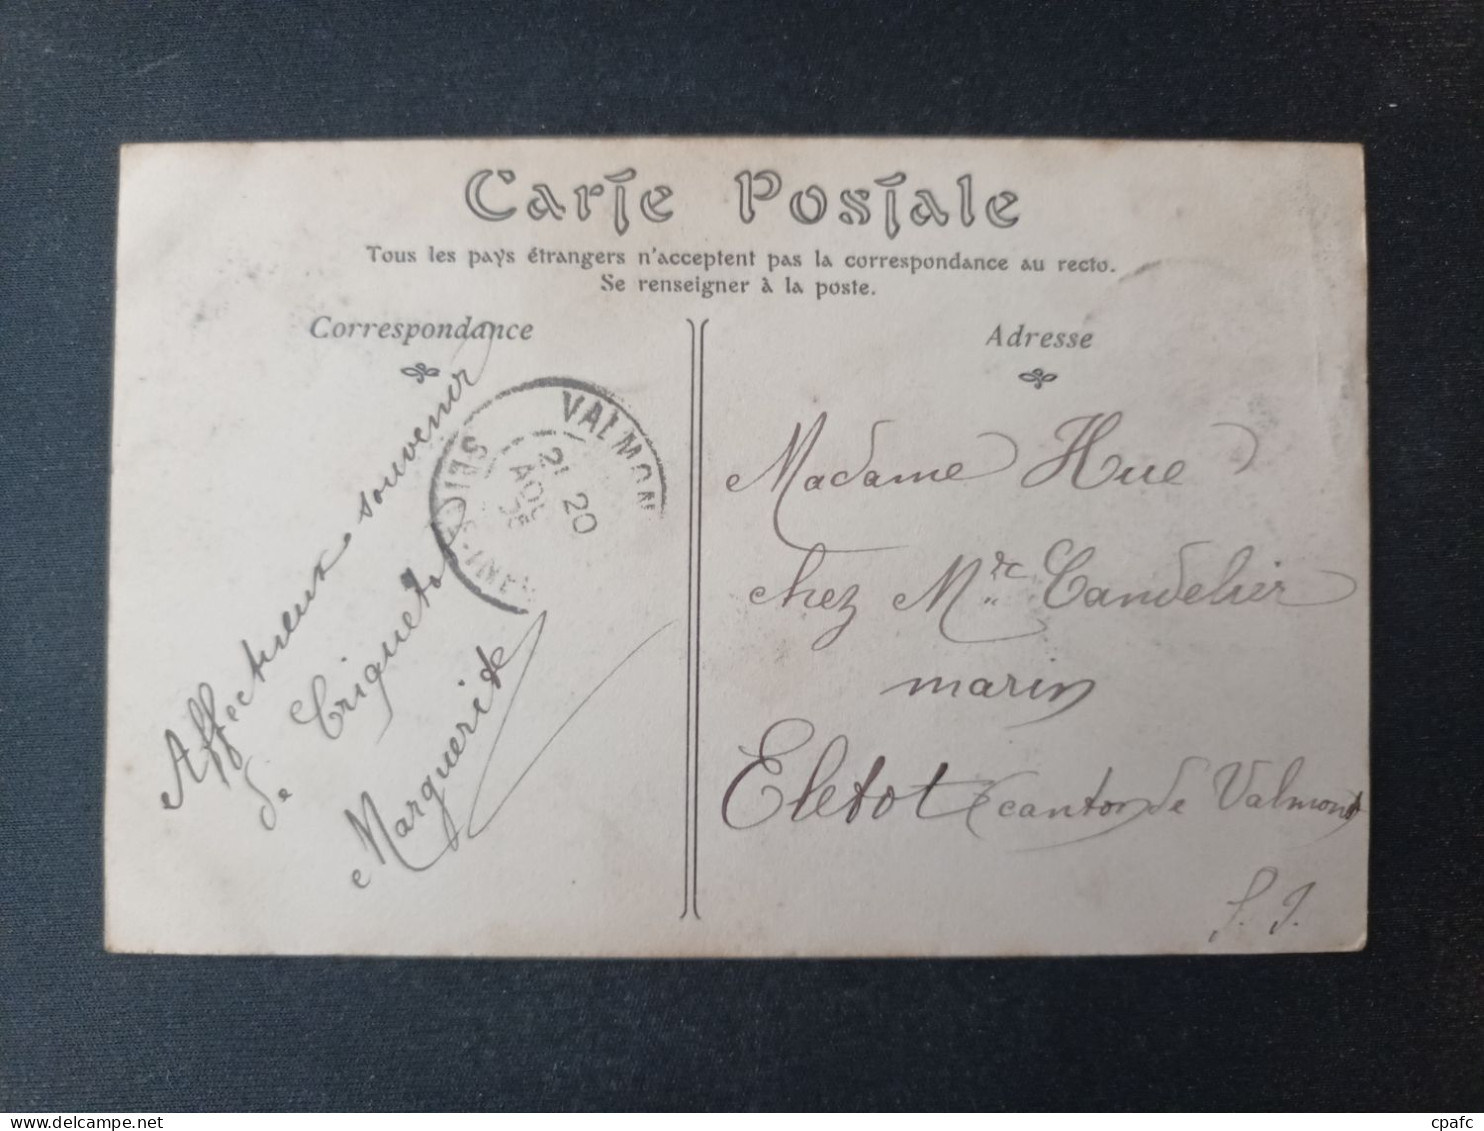 Carte Postale
Tous les pays étrangers n'acceptent pas la correspondance au recto.
Se renseigner à la poste.
Correspondance
Affectueux souvenir
de Criquetot
Marguerite
VALMON
21 20
AOU
Adresse
Madame Hue
chez Mre Candelier
marin
Eletot (canton de Valmont
S. I.
cpafc